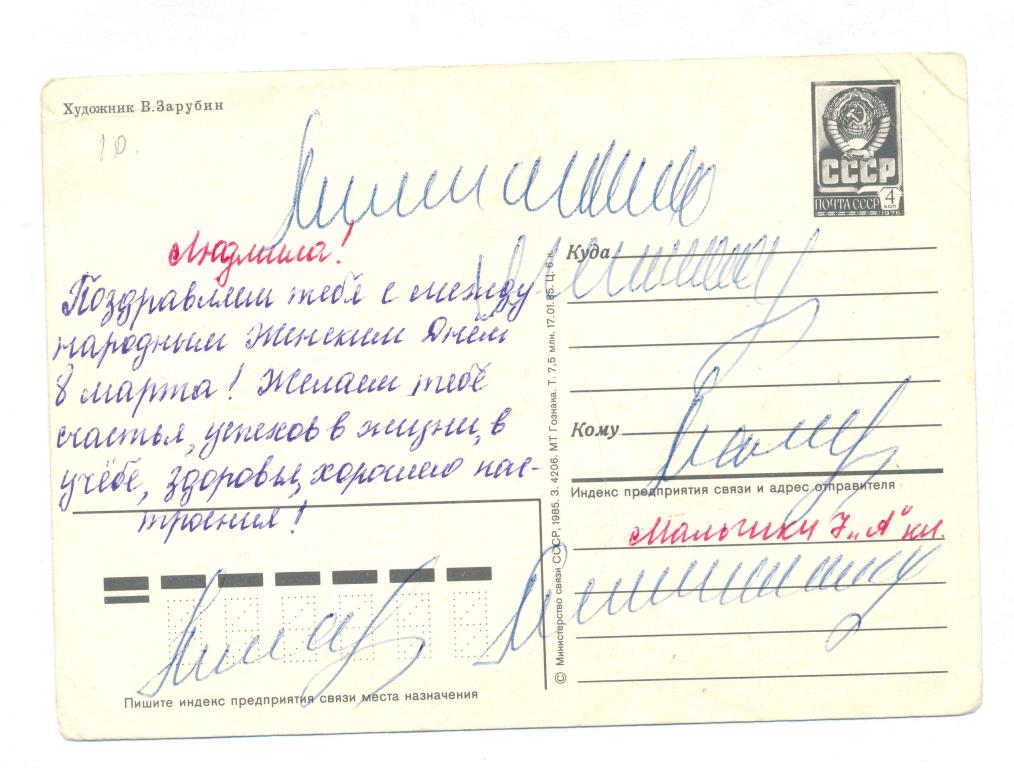 Художник В.Зарубин
10.
СССР
ПОЧТА СССР 4 коп
1976
Людмила!
Поздравляем тебя с между
народным Женским Днём
8 марта! Желаем тебе
счастья, успехов в жизни, в
учёбе, здоровья, хорошего нас-
троения!
Куда
Кому
Индекс предприятия связи и адрес отправителя
Мальчики 7 "А" кл.
© Министерство связи СССР, 1985. З. 4206. МТ Гознака. Т. 7,5 млн. 17.01.85. Ц. 6 к.
Пишите индекс предприятия связи места назначения